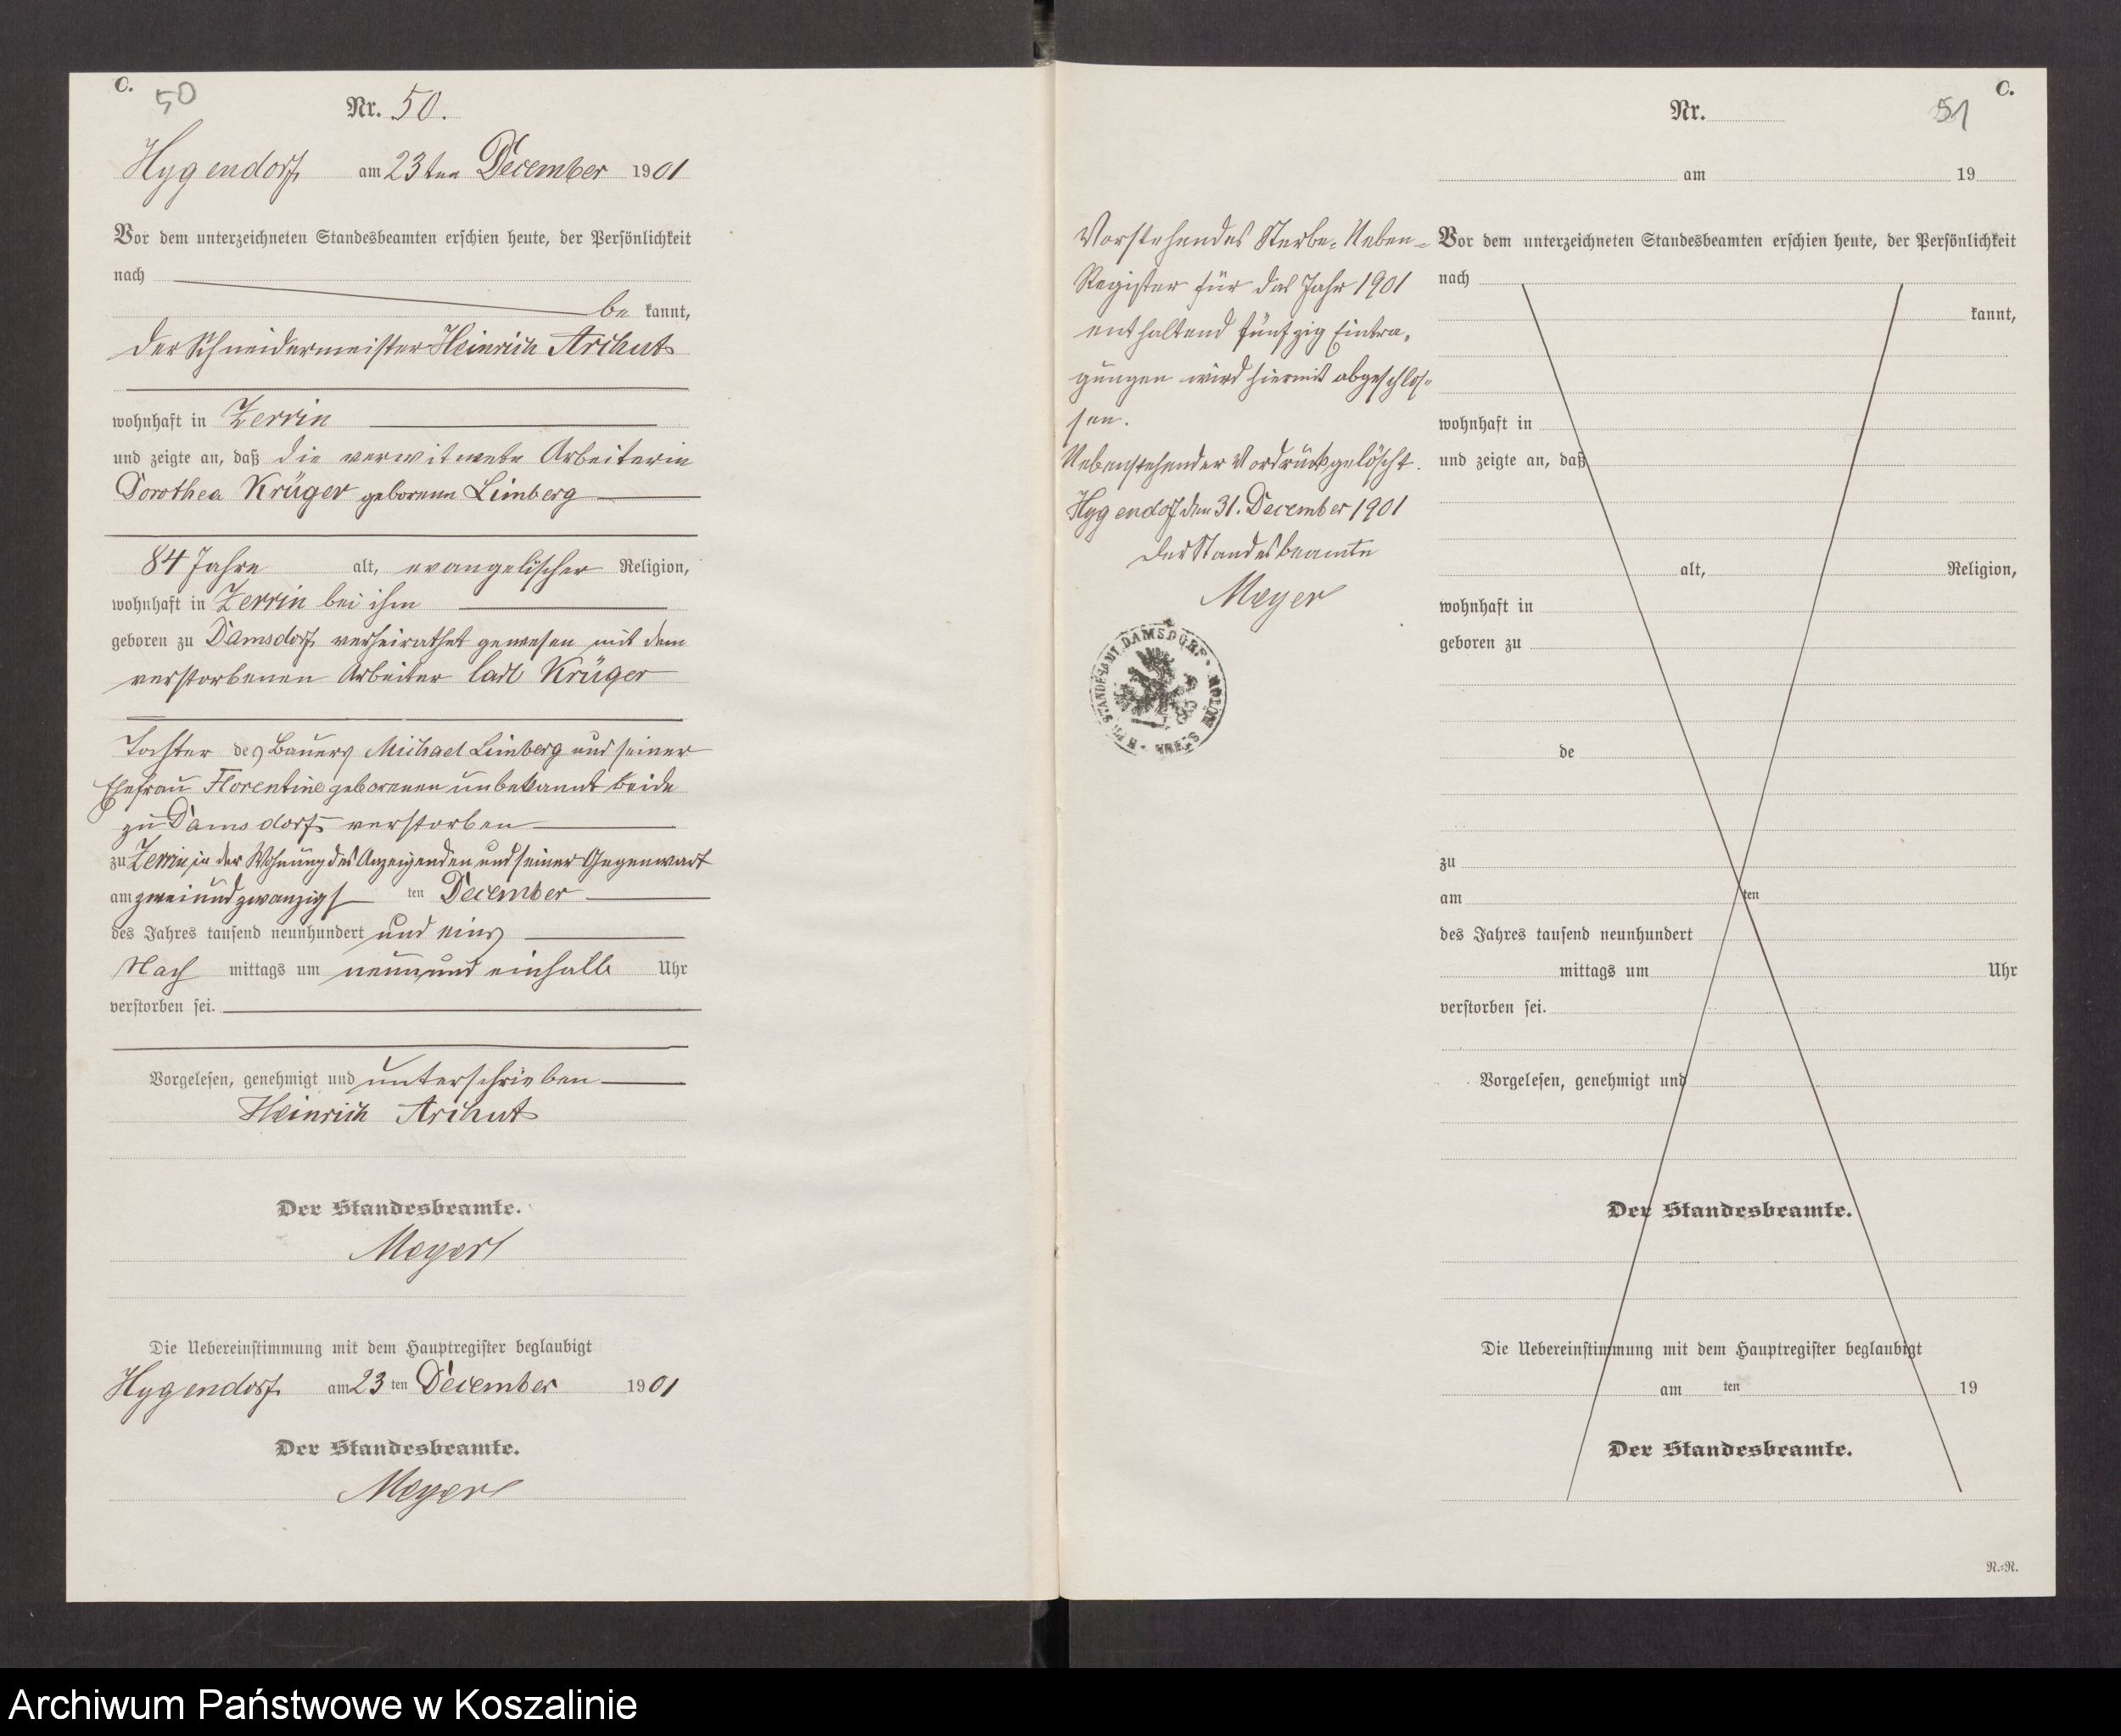 C.
50
Nr. 50.
Hygendorf am 23ten December 1901
Vor dem unterzeichneten Standesbeamten erschien heute, der Persönlichkeit
nach
be kannt,
der Schneidermeister Heinrich Archut
wohnhaft in Zerrin
und zeigte an, daß die verwitwete Arbeiterin
Dorothea Krüger geborenen Limberg
84 Jahre alt, evangelischer Religion,
wohnhaft in Zerrin bei ihm
geboren zu Damsdorf, verheirathet gewesen mit dem
verstorbenen Arbeiter Carl Krüger
Tochter des Bauers Michael Limberg und seiner
Ehefrau Florentine geborenen unbekannt beide
zu Damsdorf verstorben
zu Zerrin, in der Wohnung des Anzeigenden und seiner Gegenwart
am zweiundzwanzigs ten December
des Jahres tausend neunhundert und eins
Nach mittags um neun und einhalb Uhr
verstorben sei.
Vorgelesen, genehmigt und unterschrieben
Heinrich Archut
Der Standesbeamte.
Meyer
Die Uebereinstimmung mit dem Hauptregister beglaubigt
Hygendorf, am 23 ten December 1901
Der Standesbeamte.
Meyer
Vorstehendes Sterbe-Neben-
Register für das Jahr 1901
enthaltend fünfzig Eintra-
gungen wird hiermit abgeschlos-
sen.
Nebenstehender Vordruck gelöscht.
Hygendorf den 31. December 1901
Der Standesbeamte
Meyer
STANDESAMT DAMSDORF KREIS BÜTOW
C.
51
Nr.
am 19
Vor dem unterzeichneten Standesbeamten erschien heute, der Persönlichkeit
nach
kannt,
wohnhaft in
und zeigte an, daß
alt, Religion,
wohnhaft in
geboren zu
de
zu
am ten
des Jahres tausend neunhundert
mittags um Uhr
verstorben sei.
Vorgelesen, genehmigt und
Der Standesbeamte.
Die Uebereinstimmung mit dem Hauptregister beglaubigt
am ten 19
Der Standesbeamte.
N.-R.
Archiwum Państwowe w Koszalinie